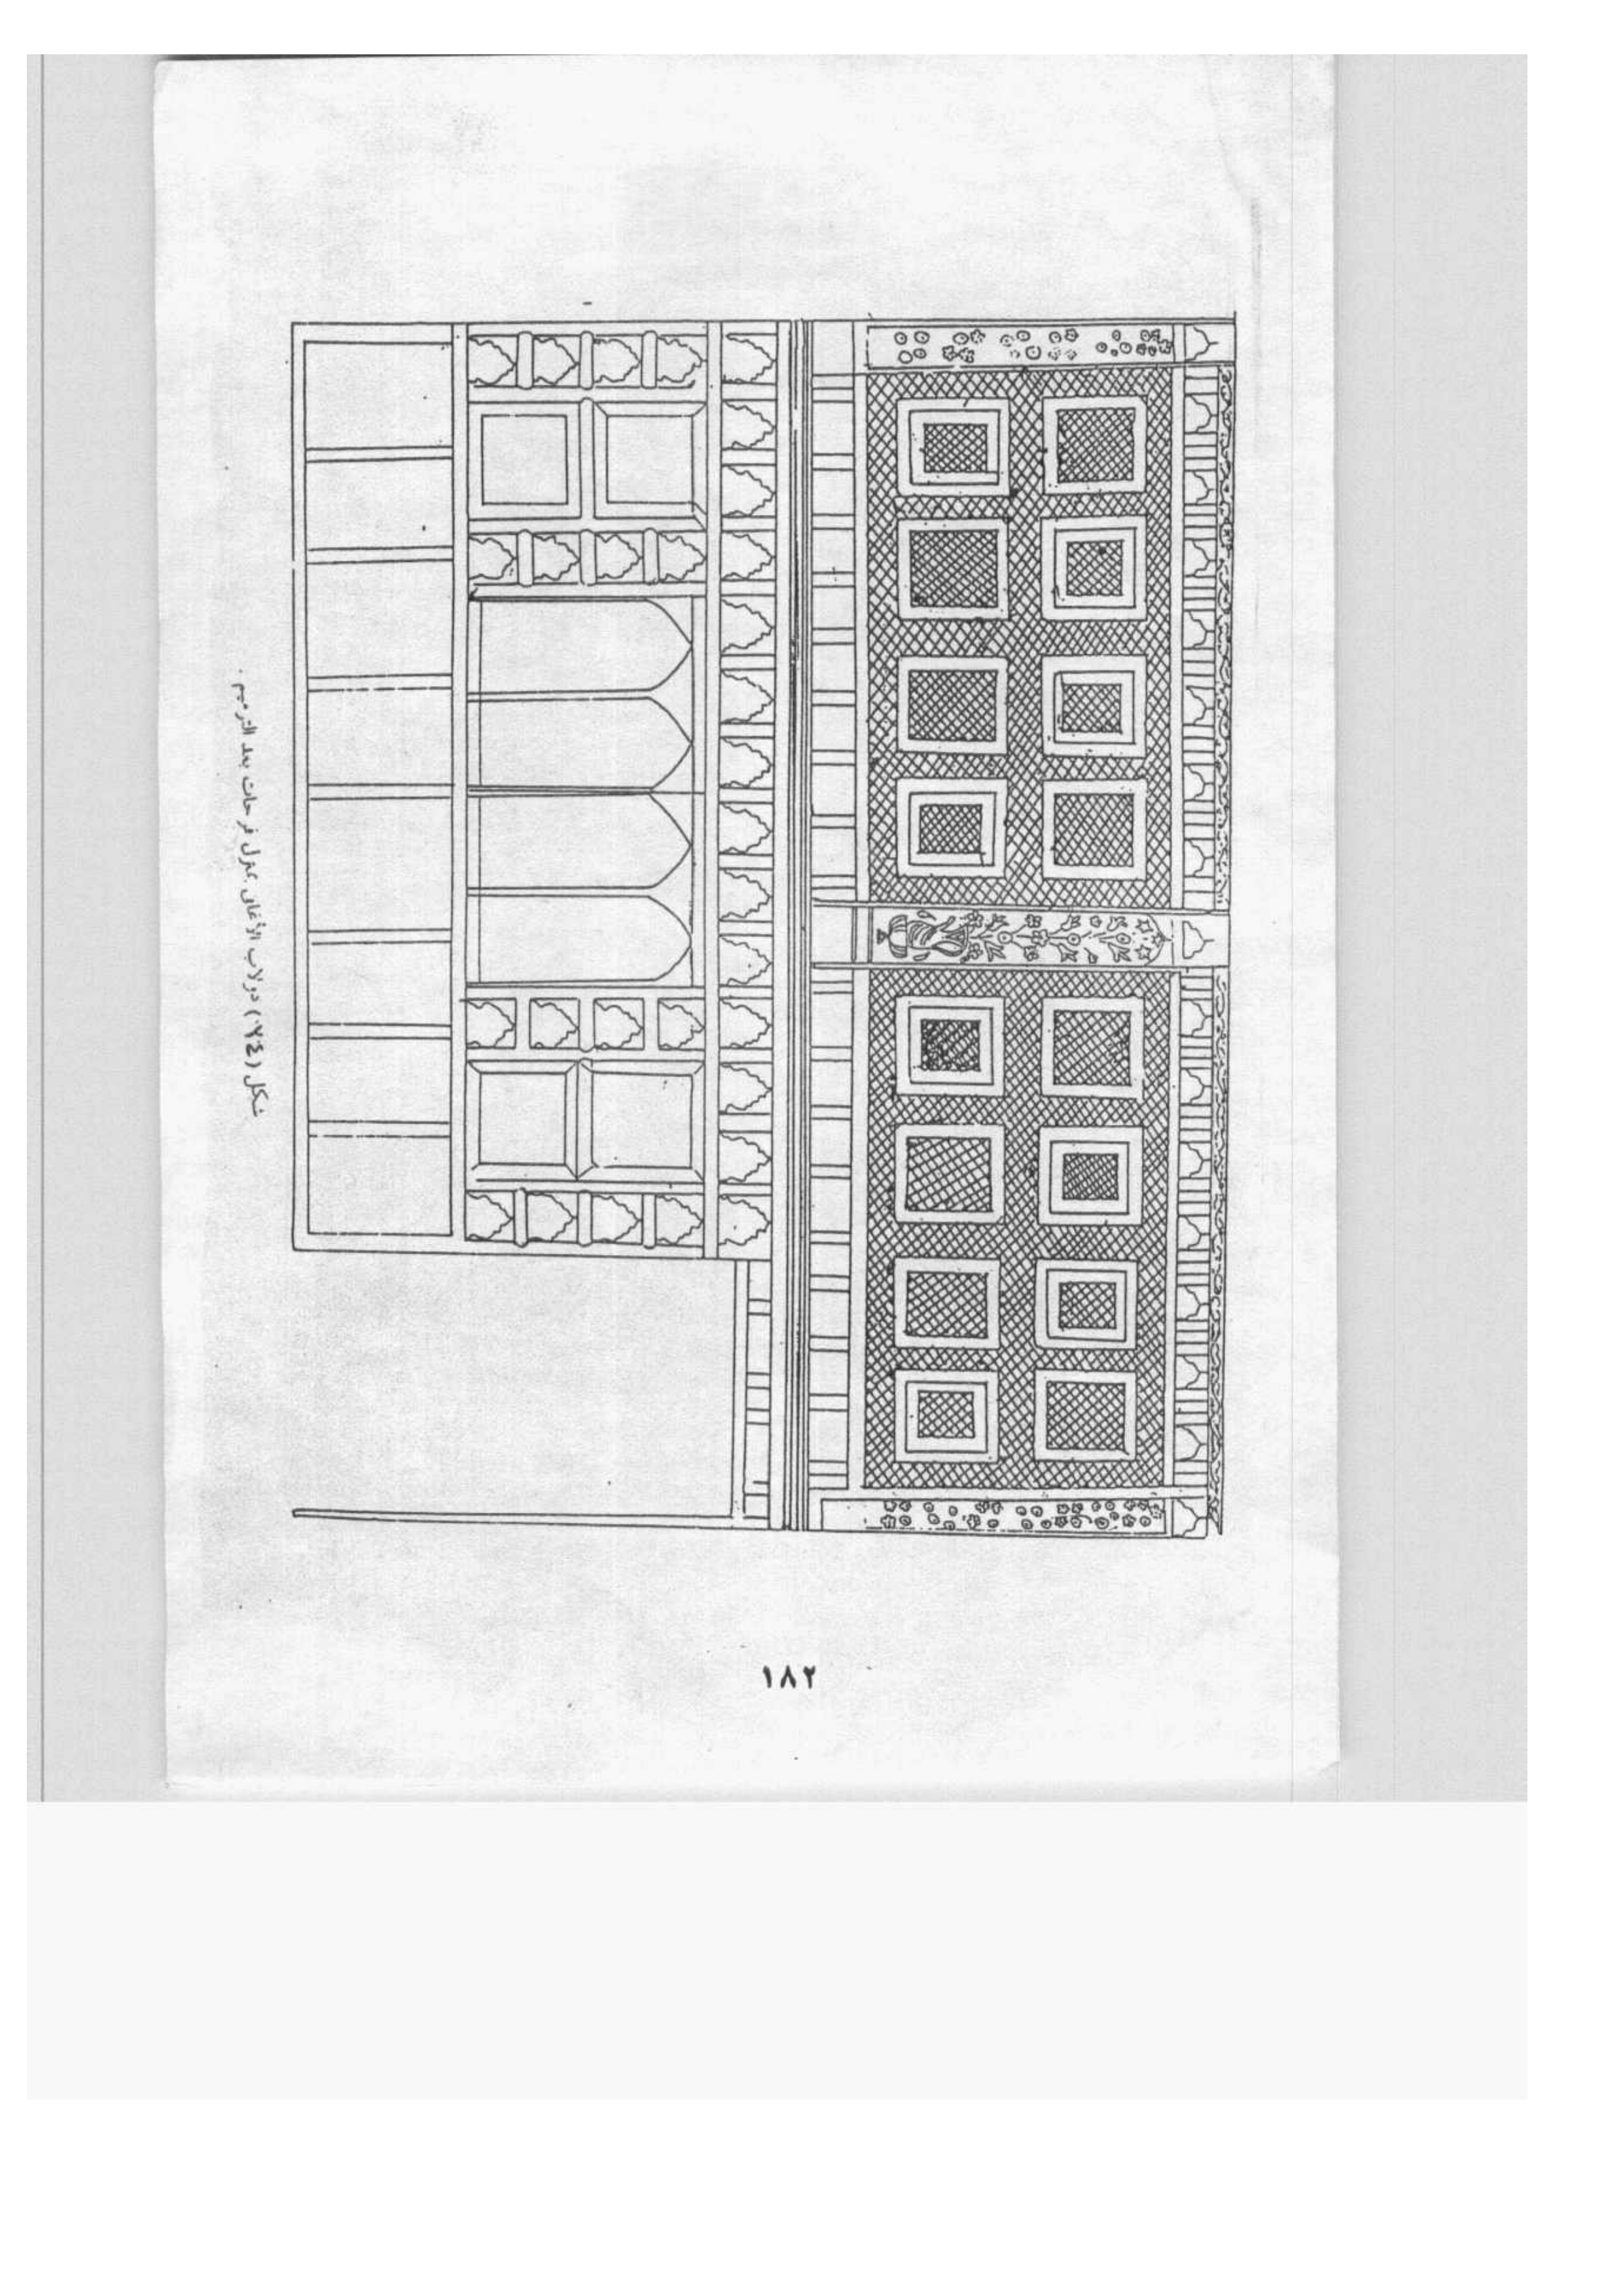 شكل (٧٤) دولاب الأغانى بمنزل فرحات بعد الترميم .
١٨٢